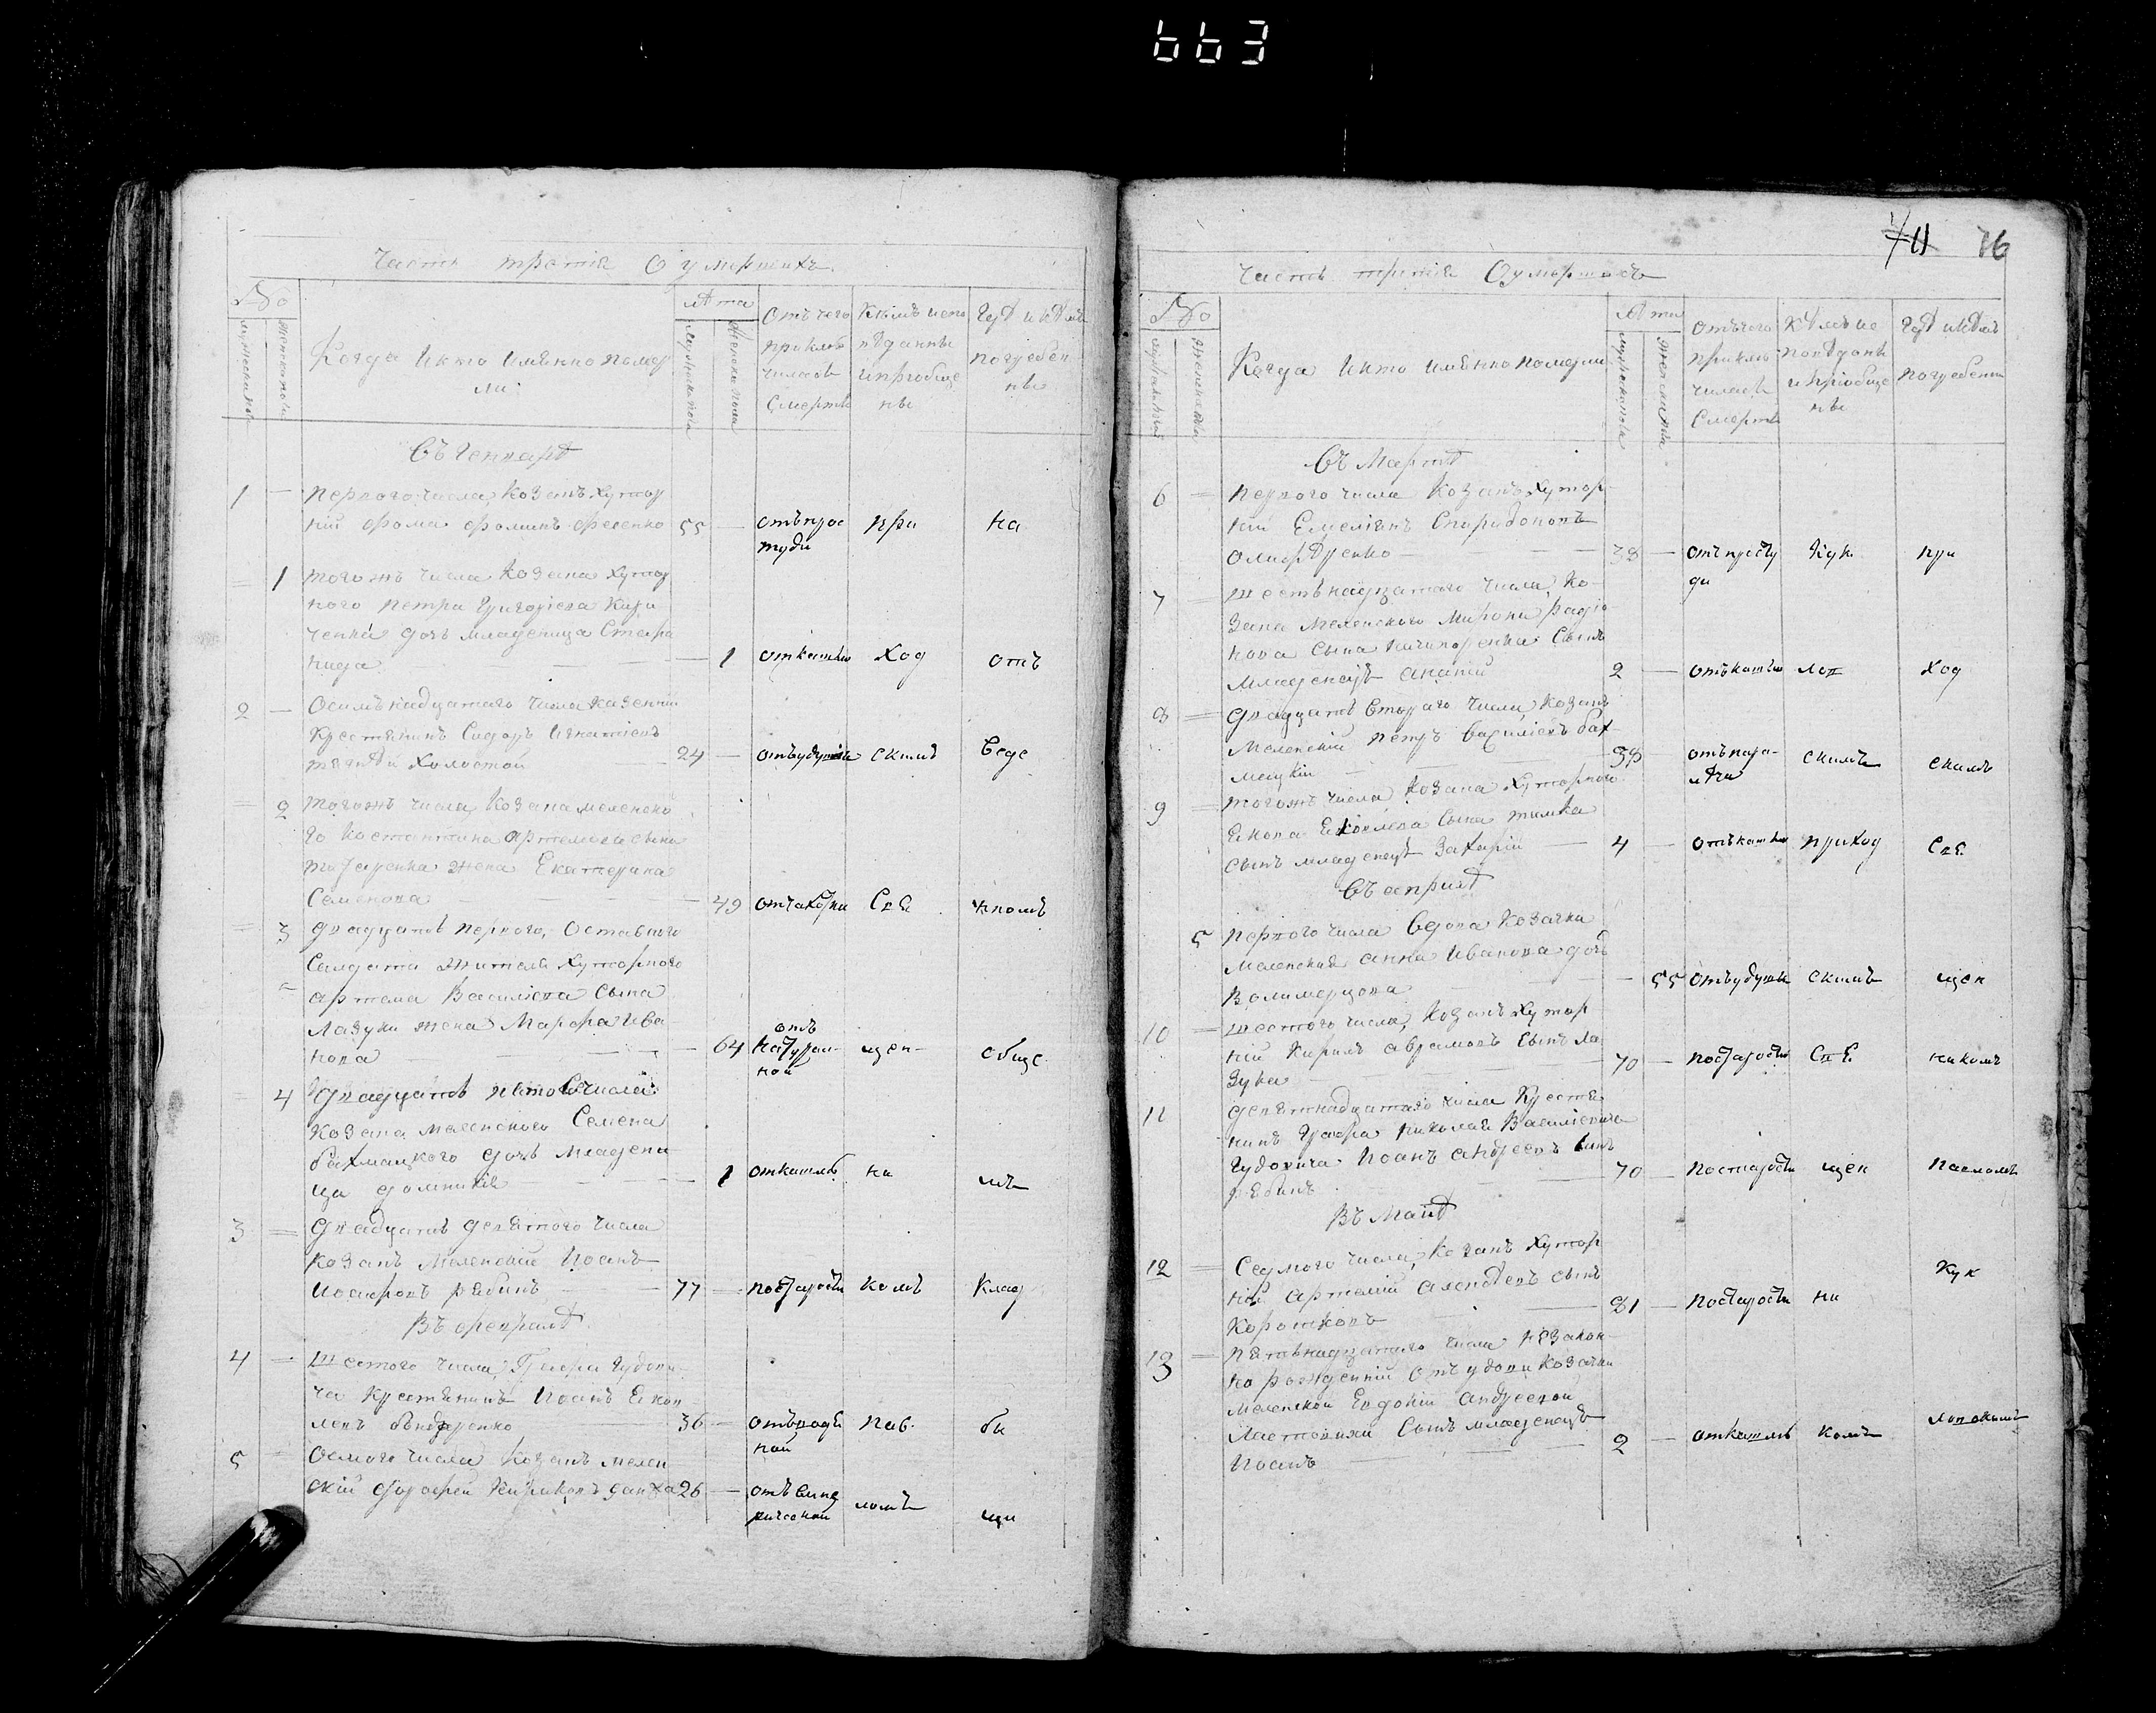 663
Часть третія О умершихъ
№
Когда и кто именно помер
ли
Лѣта
Отъ чего
приклю
чилась
смерть
Кѣмъ испо
вѣданны
и пріобще
ны
Гдѣ и кѣмъ
погребен
ны
Въ Генварѣ
1 — Перваго числа Козакъ Хутор
ній Фома Фоминъ Фесенко 55 — отъ прос при на
туди
= 1 Тогожъ числа Козака Хутор
ного Петра Григоріева
дочь младеница Стефа
нида — 1 от кашлю ход отъ
2 — Осимънадцатаго числа казенній
Крестянинъ Сидоръ Игнатіевъ
Холостой 24 — отъ удушья скимъ Веде
= 2 Тогожъ числа Козака меленско
го Костантина Артемова сына
жена Екатерина
Семенова — 49 Свя
= 3 Двадцать перваго, Оставного
Салдата жителя Хуторного
Артема Василіева сына
Лазуки жена Марфа Ива
нова — 64 отъ натураль- щен- обще
ной
= 4 Двадцать пятого числа
Козака меленского Семена
бахмацкого дочь младени
ца Домникія — 1 от кашлю на мъ
3 = Двадцать девятого числа
Козакъ Меленскій Иоанъ
Иосифовъ рябинъ 77 — по старости комъ Клад
Въ Февралѣ
4 = Шестого числа, Графа Гудови
ча Крестянинъ Иоанъ Яков
левъ бондаренко 36 — отъ водя Пав. би
ной
5 = Осмого числа Козакъ мелен
скій Дорофей 26 — отъ ломъ щи
74 76
Часть третія О умершихъ
№
Когда и кто именно померли
Лѣта
Отъ чего
приклю
чилась
смерть
Кѣмъ ис
повѣданы
и пріобще
ны
Гдѣ и кѣмъ
погребены
Въ Мартѣ
6 = Перваго числа Козакъ Хутор
ній Емеліянъ Спиридоновъ
Олифѣренко — 38 — отъ просту Кук при
ди
7 = Шестьнадцатого числа, Ко
зака Меленского Мирона Радіо
нова сына Ничипоренка сынъ
младенецъ Ананій 2 — отъ кашлю лов ход
8 = Двадцать второго числа, Козакъ
Меленскій Петръ Василіевъ бах
мацкій — 38 отъ пара- скимъ скимъ
лѣча
9 = Тогожъ числа Козака Хуторного
Якова Яковлева сына тимка
сынъ младенецъ Захарій — 4 — отъ кашлю приход Свя
Въ Априлѣ
5 Перваго числа Вдова Козачка
Меленская Анна Иванова дочь
— 55 отъ удушья скимъ щен
10 = Шестого числа, Козакъ Хутор
ній Кирилъ Аврамовъ сынъ Ла
зука 70 — по старости Свя никомъ
11 Девятнадцатого числа Крестя
нинъ Графа Николая Василіевича
Гудовича Иоанъ Андреевъ сынъ
рябинъ 70 — по старости щен Павломъ
Въ Маіѣ
12 = Седмого числа, Козакъ Хутор
ній Артемій Алексѣевъ сынъ
Коротковъ 81 — по старости ни Кук
13 = Пятьнадцатого числа незакон
но рожденній отъ вдови Козачки
Меленской Евдокіи Андреевой
Ластовихи сынъ младенецъ
Иоанъ 2 — от кашлю комъ ловскимъ